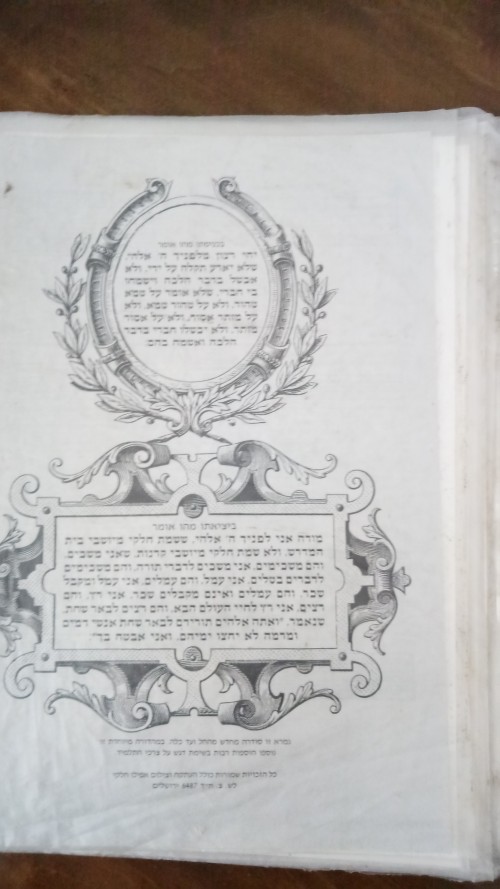 בכניסתו מהו אומר
יהי רצון מלפניך ה' אלהי,
שלא יארע תקלה על ידי, ולא
אכשל בדבר הלכה וישמחו
בי חברי, שלא אומר על טמא
טהור, ולא על טהור טמא, ולא
על מותר אסור, ולא על אסור
מותר, ולא יכשלו חברי בדבר
הלכה ואשמח בהם.
ביציאתו מהו אומר
מודה אני לפניך ה' אלהי, ששמת חלקי מיושבי בית
המדרש, ולא שמת חלקי מיושבי קרנות, שאני משכים,
והם משכימים, אני משכים לדברי תורה, והם משכימים
לדברים בטלים, אני עמל, והם עמלים, אני עמל ומקבל
שכר, והם עמלים ואינם מקבלים שכר, אני רץ, והם
רצים, אני רץ לחיי העולם הבא, והם רצים לבאר שחת,
שנאמר, "ואתה אלהים תורידם לבאר שחת אנשי דמים
ומרמה לא יחצו ימיהם, ואני אבטח בך"
גמרא זו סודרה מחדש מתחל ועד כלה, במהדורה מיוחדת זו
נוספו הוספות רבות בשימת דגש על צרכי הלומד
כל הזכויות שמורות כולל העתקה וצילום אפילו חלקי
ת.ד. 6487 ירושלים